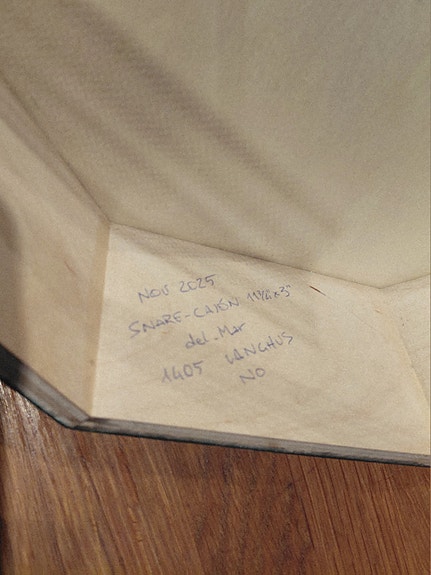 NOV 2025
SNARE-CAJÓN 11½"x3"
del-Mar
1405 LANGHUS
NO